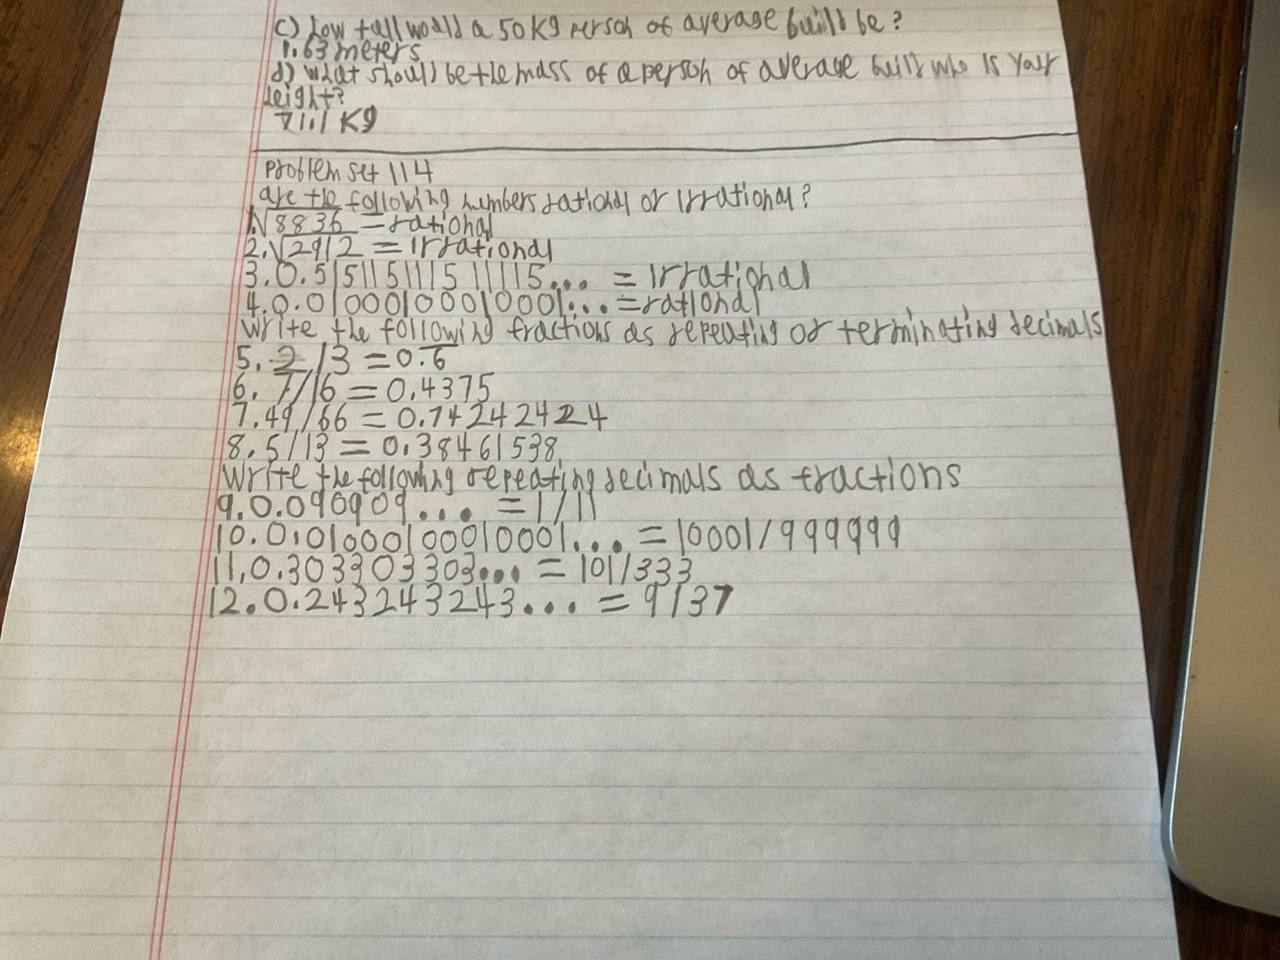 c) how tall would a 50 kg person of average build be?
1.63 meters
d) what should be the mass of a person of average build who is your
height?
71.1 kg
Problem set 114
are the following numbers rational or irrational?
1.√8836 = rational
2.√2912 = irrational
3.0.515115111511115... = irrational
4.0.01000100010001... = rational
write the following fractions as repeating or terminating decimals
5. 2/3 = 0.6̅
6. 7/16 = 0.4375
7.49/66 = 0.742424224
8.5/13 = 0.38461538
write the following repeating decimals as fractions
9.0.090909... = 1/11
10.0.01000100010001... = 10001/999999
11.0.303303303... = 101/333
12.0.243243243... = 9/37